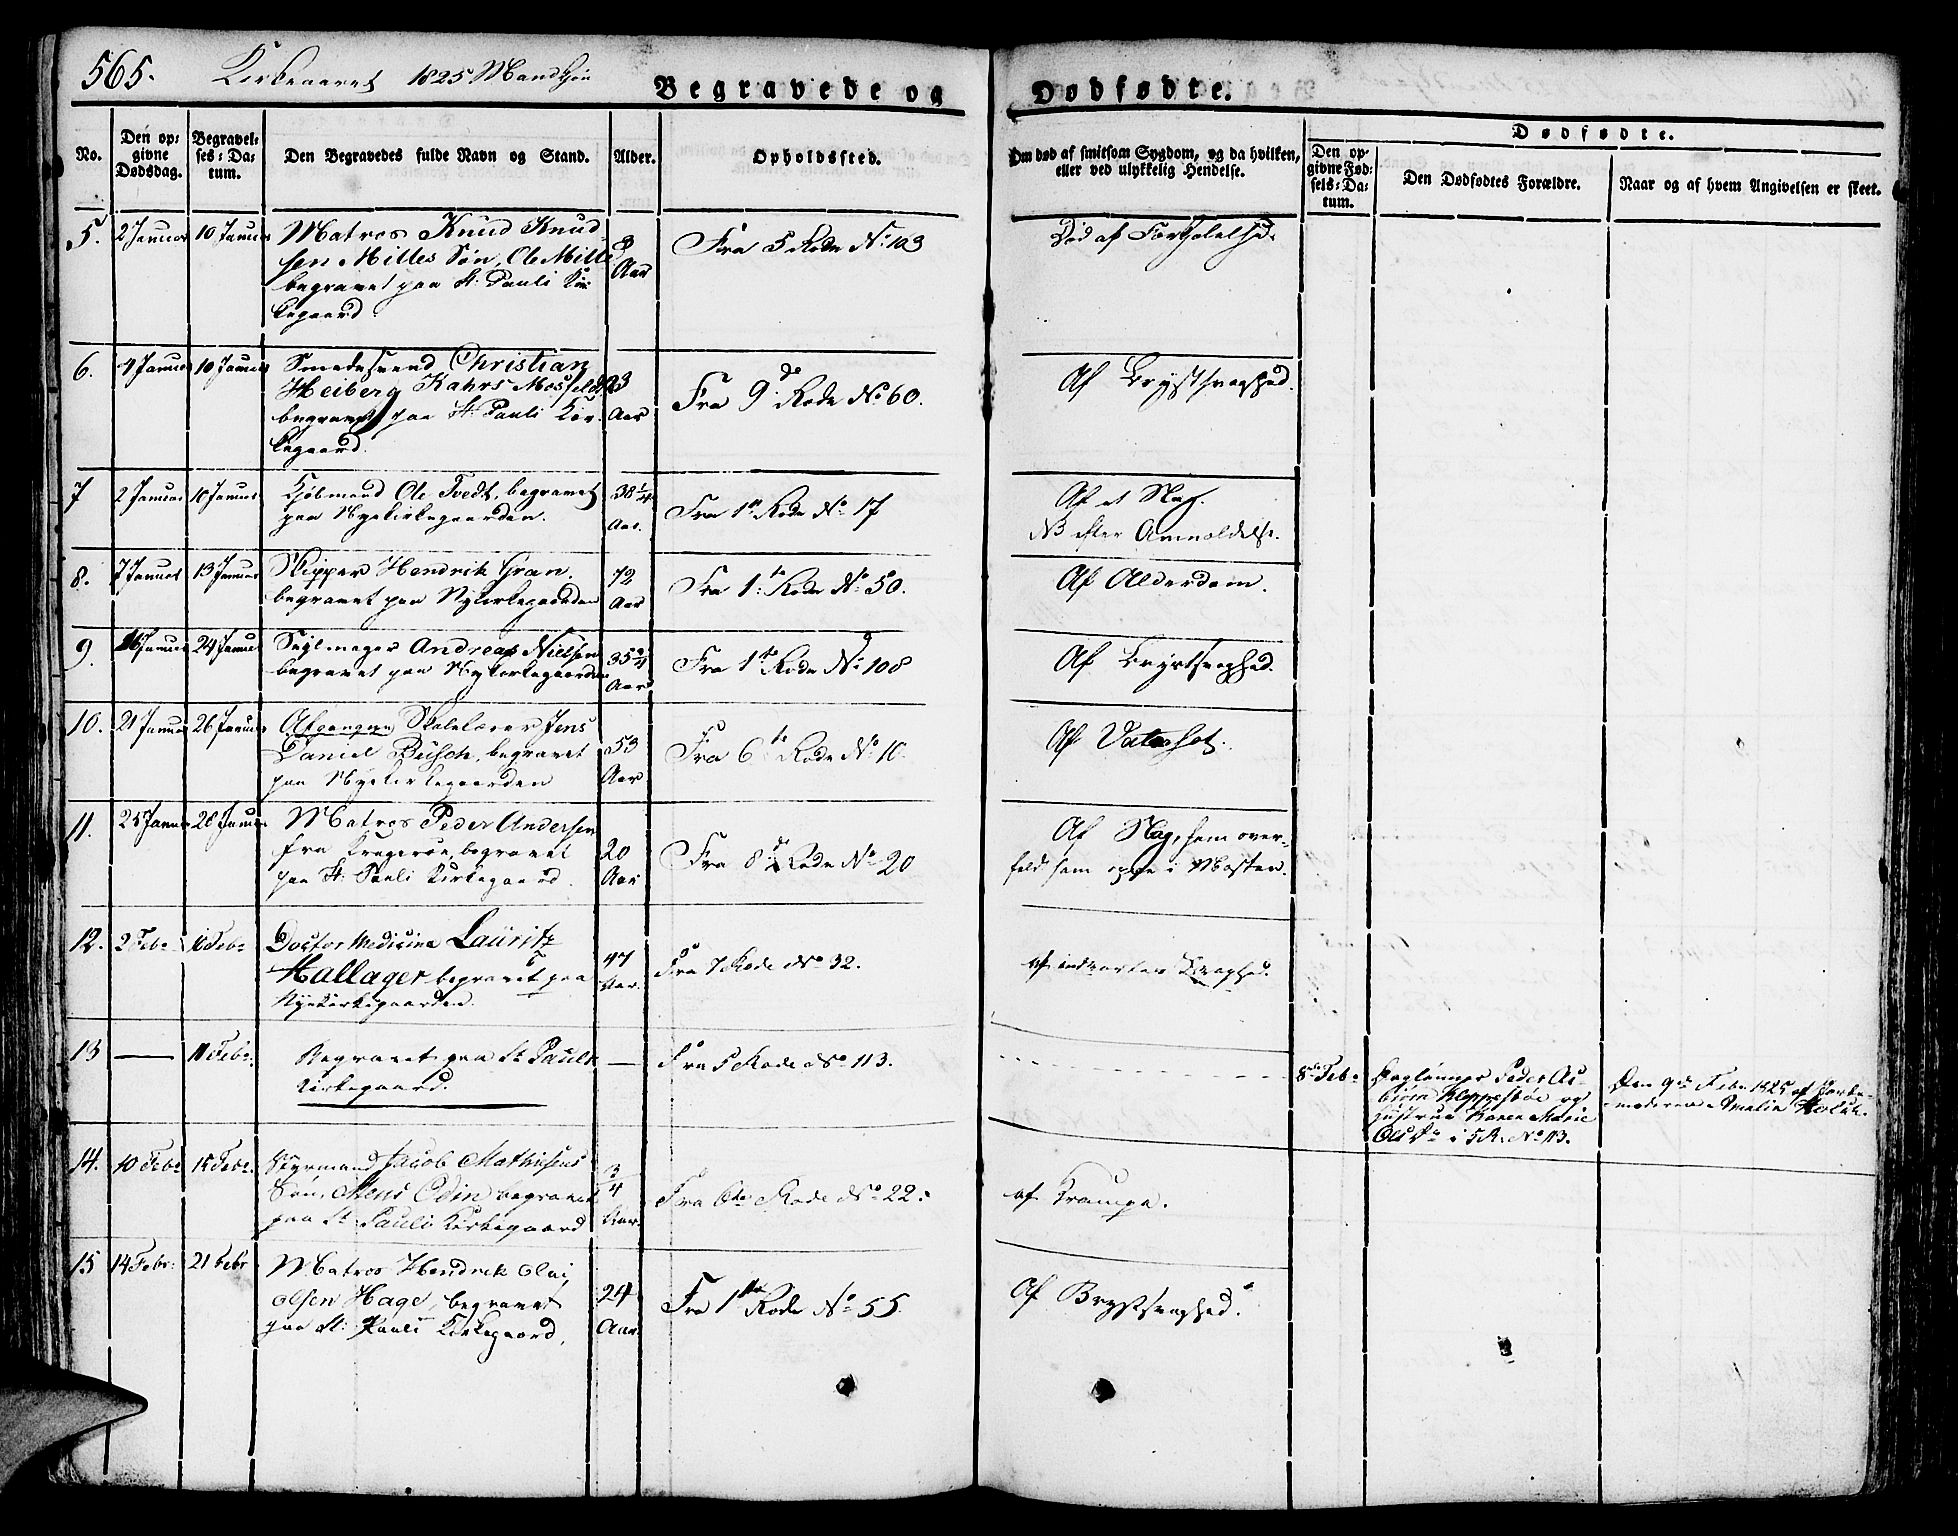 565. Kirkeaaret 1825 Mandkjøn
Begravede og Dødfødte.
No.
Den op-
givne
Dødsdag.
Begravel-
ses-Da-
tum.
Den Begravedes fulde Navn og Stand.
Alder.
Opholdssted.
Om død af smitsom Sygdom, og da hvilken,
eller ved ulykkelig Hendelse.
Dødfødte.
Den op-
givne Fød-
sels-Da-
tum.
Den Dødfødtes Forældre.
Naar og af hvem Angivelsen er skeet.
5. 2 Januar 10 Januar Matros Knud Knud-
sen Milles Søn, Ole Mille
begravet paa St: Pauli Kir-
kegaard.
3
Aar
Fra 5 Rode No: 103
Død af Forkjølelse.
6. 4 Januar 10 Januar Smedesvend Christian
Heiberg Kahrs
begravet paa St: Pauli Kir-
kegaard.
23
Aar
Fra 9de Rode No 60.
Af Brystsvaghed.
7 2 Januar 10 Januar Kjøbmand Ole Tvedt, begravet
paa Nyekirkegaarden.
38 1/4
Aar.
Fra 1te Rode No 17
Af et Slag.
NB efter Anmeldelse.
8. 7 Januar 13 Januar Skipper Hendrik Gran.
begravet paa Nykirkegaarden
72
Aar
Fra 1te Rode No: 50.
Af Alderdom.
9. 16 Januar 24 Januar Seilmager Andreas Nielsen
begravet paa Nykirkegaarden
35 3/4
Aar
Fra 1te Rode No: 108
Af Brystsvaghed.
10. 21 Januar 26 Januar Afgangen Skolelærer Jens
Daniel Busch, begravet
paa Nyekirkegaarden
53
Aar
Fra 6te Rode No: 10.
Af Vatersot.
11. 25 Januar 28 Januar Matros Peder Andersen
fra Kragerøe, begravet
paa St: Pauli Kirkegaard.
20
Aar
Fra 8de Rode No: 20
Af Slag, som over-
faldt ham oppe i Masten.
12. 2 Febr 11 Febr Doctor Medicina Lauritz
Hallager begravet paa
Nyekirkegaarden.
47
Aar.
Fra 7 Rode No 32.
af indvortes Svaghed.
13 — 11 Febr. Begravet paa St Pauli
Kirkegaard.
—
Fra 5 Rode No 113.
8de Febr
Peder As-
biørn Kleppestøe og
Hustrue Karen Marie
Olsdr i 5 R. No 113.
Den 9de Febr 1825 af Jorde-
moderen Amalia Holck.
14. 10 Febr 15 Febr. Styrmand Jacob Mathisens
Søn, Mens Odin begravet
paa St. Pauli Kirkegaard
3/4
Aar.
Fra 6te Rode No 22.
af Krampe.
15 14 Febr: 21 Febr Matros Hendrik Olai
Olsen Hage, begravet
paa St: Pauli Kirkegaard,
24
Aar.
Fra 1te Rode No 55.
Af Brystsvaghed.